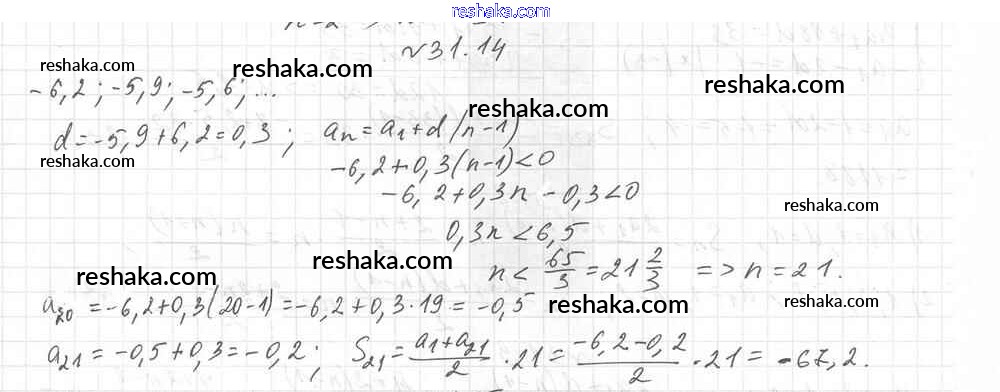 reshaka.com
№31.14
reshaka.com
reshaka.com
reshaka.com
-6,2; -5,9; -5,6; ...
reshaka.com
d=-5,9+6,2=0,3; an=a1+d(n-1)
reshaka.com
-6,2+0,3(n-1)<0
-6,2+0,3n-0,3<0
reshaka.com
0,3n<6,5
reshaka.com
reshaka.com
n< 65/3 = 21 2/3 => n=21.
a20=-6,2+0,3(20-1)=-6,2+0,3·19=-0,5
reshaka.com
reshaka.com
a21=-0,5+0,3=-0,2; S21= a1+a21/2 ·21= -6,2-0,2/2 ·21= -67,2.